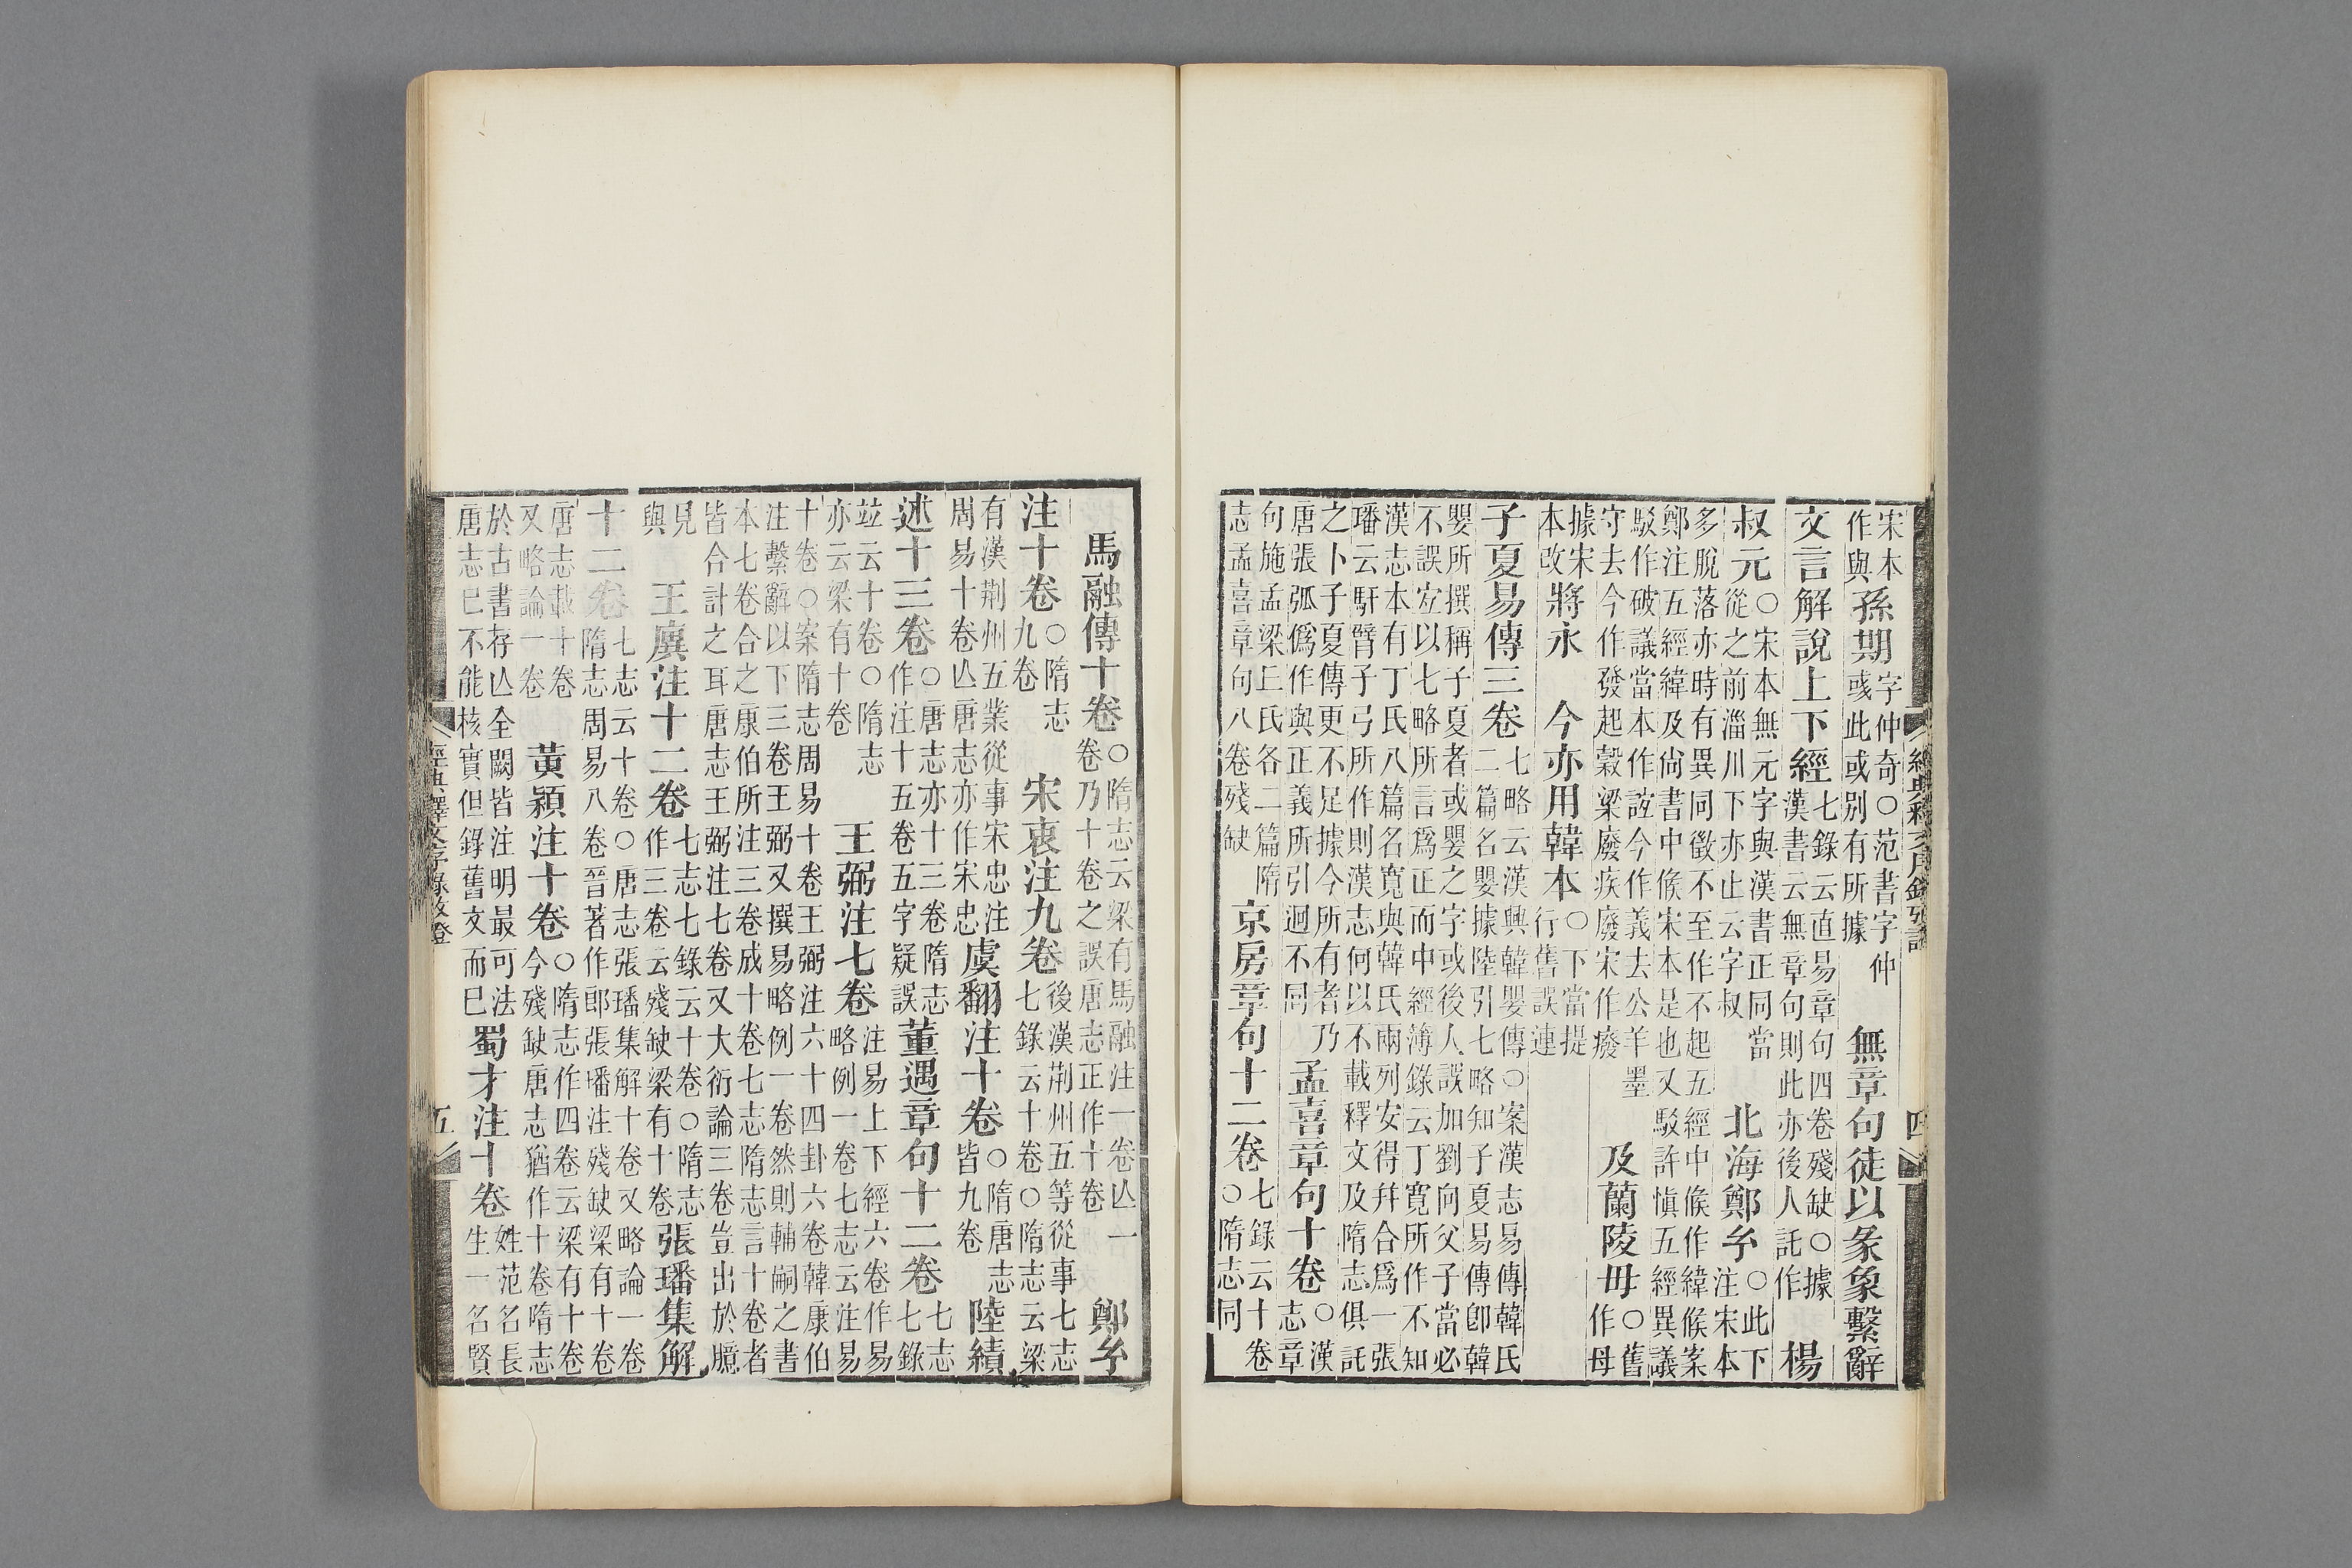 經典釋文序錄攷證
四
宋本作與孫期字仲奇○范書字仲彧此或別有所據 無章句徒以彖象繫辭
文言解說上下經七錄云直易章句四卷殘缺○據漢書云無章句則此亦後人託作 楊
叔元○宋本無元字與漢書正同當從之前淄川下亦止云字叔 北海鄭𢆯○此下注宋本
多脫落亦時有異同徵不至作不起五經中候作緯候案鄭注五經緯及尚書中候宋本是也又駁許慎五經異議
駁作破議當本作誼今作義去公羊墨守去今作發起穀梁廢疾廢宋作癈 及蘭陵毋○舊作母
據宋本改將永 今亦用韓本○下當提行舊誤連
子夏易傳三卷七略云漢興韓嬰傳○案漢志易傳韓氏二篇名嬰據陸引七略知子夏易傳卽韓
嬰所撰稱子夏者或嬰之字或後人誤加劉向父子當必不誤㝎以七略所言爲正而中經薄錄云丁寬所作不知
漢志本有丁氏八篇名寬與韓氏兩列安得幷合爲一張璠云馯臂子弓所作則漢志何以不載釋文及隋志俱託
之卜子夏傳更不足據今所有者乃唐張弧僞作與正義所引迥不同 孟喜章句十卷○漢志章
句施孟梁丘氏各二篇隋志孟喜章句八卷殘缺 京房章句十二卷七錄云十卷○隋志同
馬融傳十卷○隋志云梁有馬融注一卷亾一卷乃十卷之誤唐志正作十卷 鄭𢆯
注十卷○隋志九卷 宋衷注九卷後漢荆州五等從事七志七錄云十卷○隋志云梁
有漢荆州五業從事宋忠注周易十卷亾唐志亦作宋忠虞翻注十卷○隋唐志皆九卷 陸績
述十三卷○唐志亦十三卷隋志作注十五卷五字疑誤董遇章句十二卷七志七錄
竝云十卷○隋志亦云梁有十卷 王弼注七卷注易上下經六卷作易略例一卷七志云注易
十卷○案隋志周易十卷王弼注六十四卦六卷韓康伯注繫辭以下三卷王弼又撰易略例一卷然則輔嗣之書
本七卷合之康伯所注三卷成十卷七志隋志言十卷者皆合計之耳唐志王弼注七卷又大衍論三卷豈出於臆
見與 王廙注十二卷七志七錄云十卷○隋志作三卷云殘缺梁有十卷張璠集解
十二卷七志云十卷○唐志張璠集解十卷又略論一卷隋志周易八卷晉著作郎張璠注殘缺梁有十卷
唐志載十卷又略論一卷 黃穎注十卷○隋志作四卷云梁有十卷今殘缺唐志猶作十卷隋志
於古書存亾全闕皆注明最可法唐志巳不能核實但錄舊文而巳蜀才注十卷姓范名長生一名賢
經典釋文序錄攷證
五